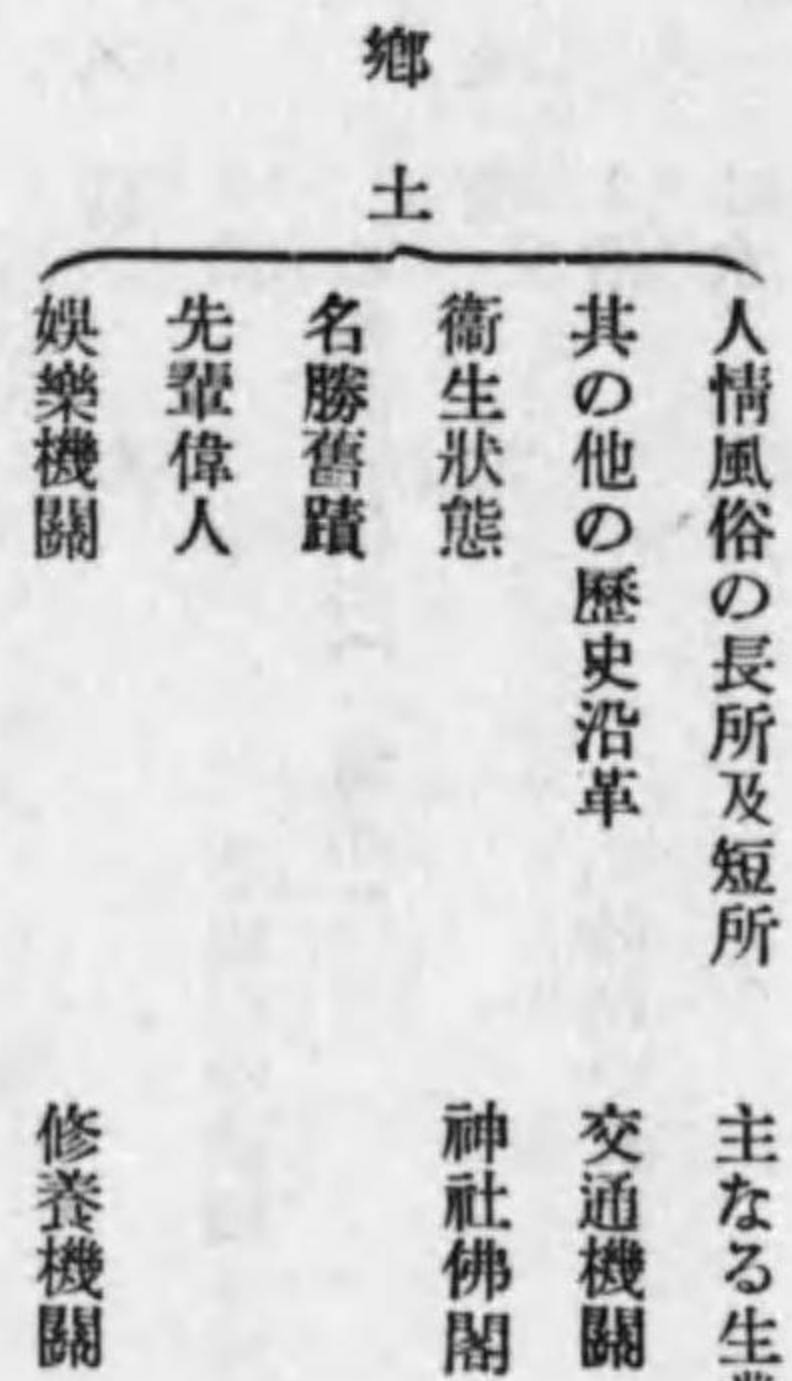 鄕土
人情風俗の長所及短所　主なる生業
其の他の歷史沿革　交通機關
衞生狀態　神社佛閣
名勝舊蹟
先輩偉人
娛樂機關　修養機關